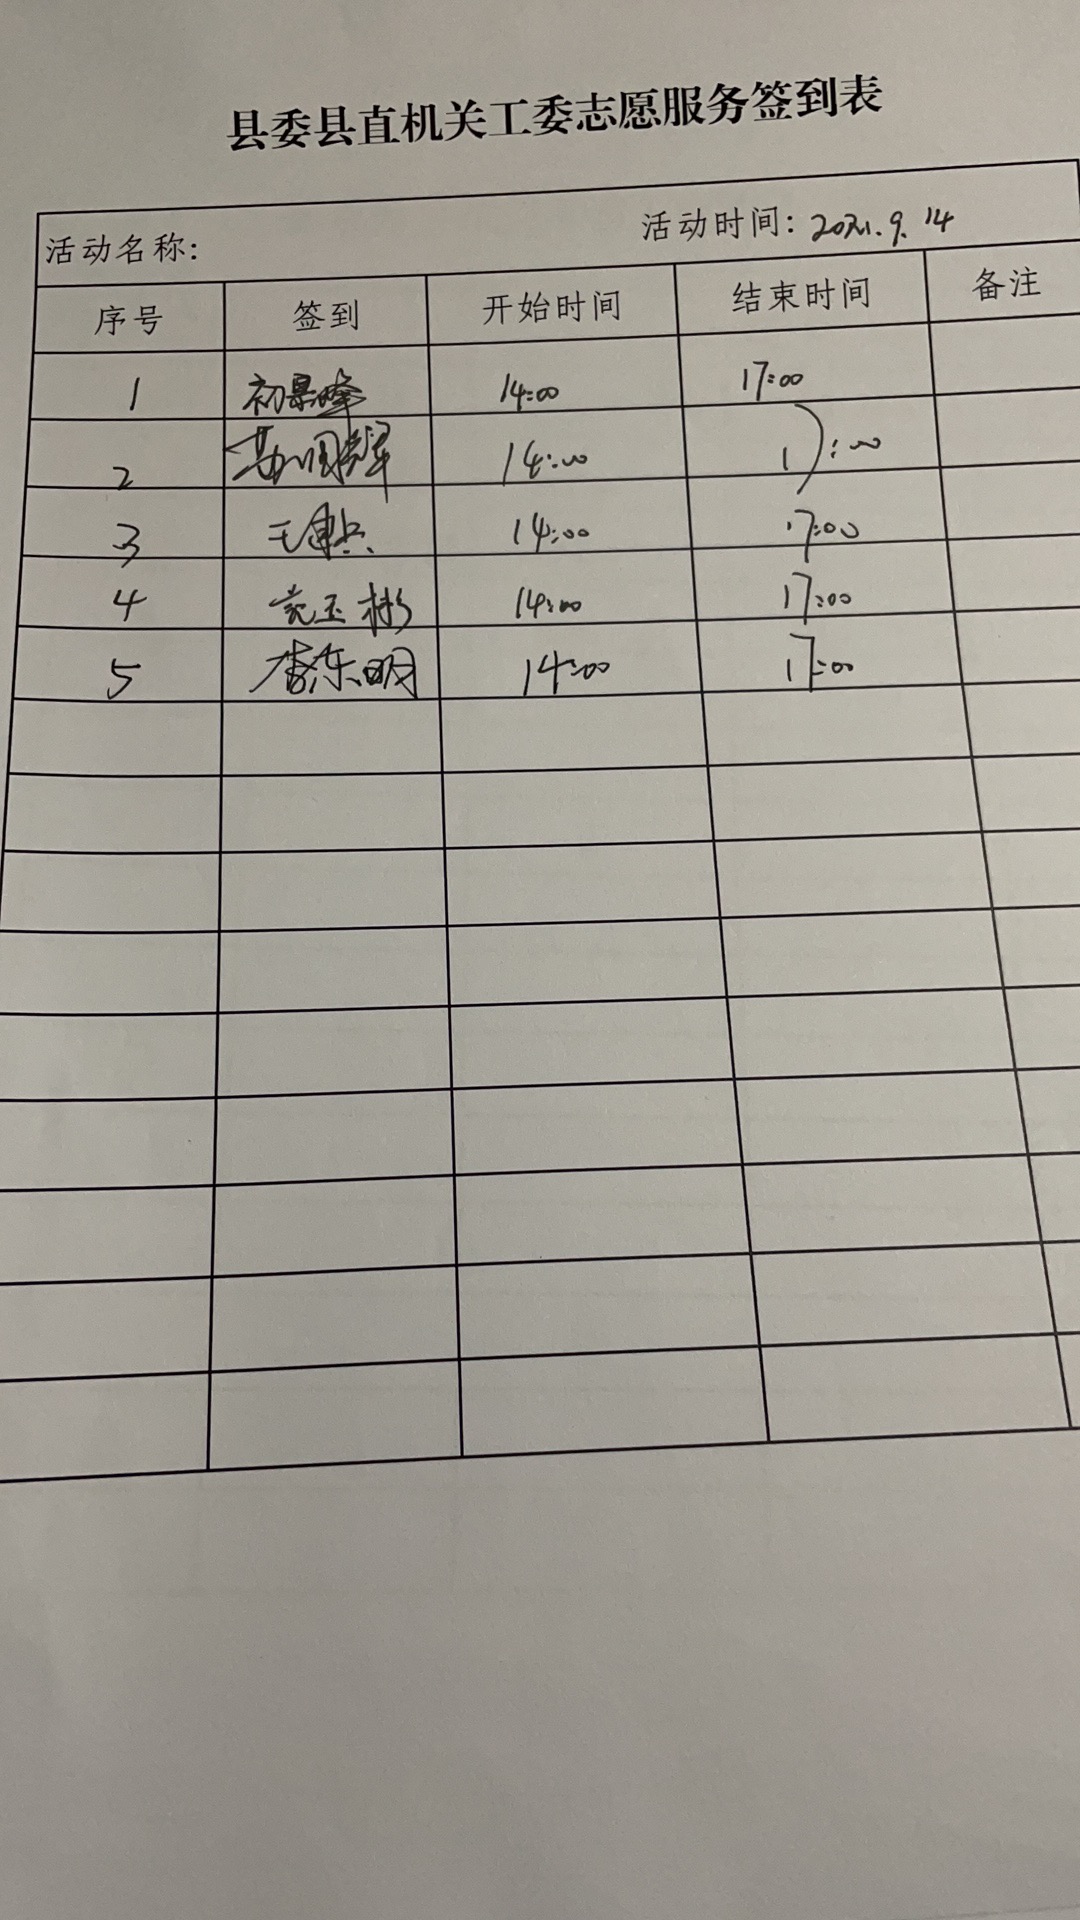 县委县直机关工委志愿服务签到表
活动名称: 活动时间: 2021.9.14
序号 签到 开始时间 结束时间 备注
1 初景峰 14:00 17:00
2 14:00 17:00
3 14:00 17:00
4 14:00 17:00
5 李东明 14:00 17:00